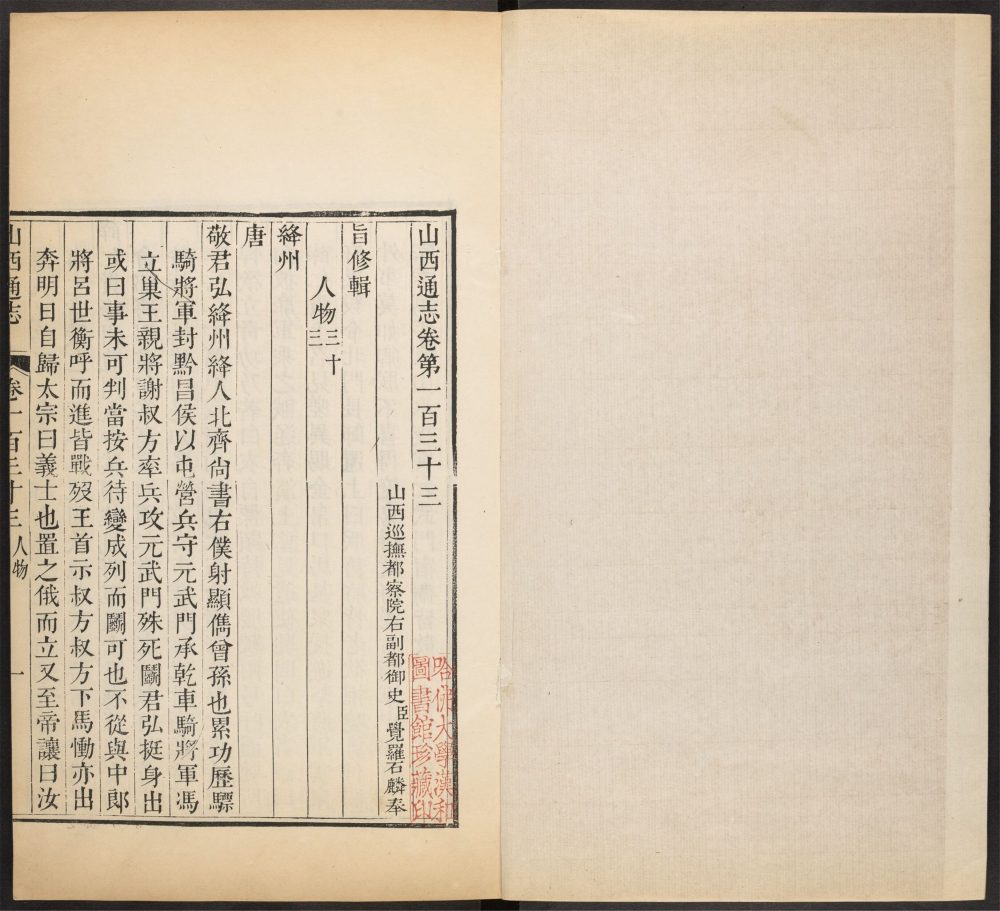 山西通志卷第一百三十三
山西巡撫都察院右副都御史臣覺羅石麟奉
旨修輯
人物三十三
絳州
唐
敬君弘絳州絳人北齊尙書右僕射顯儁曾孫也累功歷驃
騎將軍封黔昌侯以屯營兵守元武門承乾車騎將軍馮
立巢王親將謝叔方率兵攻元武門殊死鬬君弘挺身出
或曰事未可判當按兵待變成列而鬬可也不從與中郎
將呂世衡呼而進皆戰歿王首示叔方叔方下馬慟亦出
奔明日自歸太宗曰義士也置之俄而立又至帝讓曰汝
山西通志 卷一百三十三 人物 一
哈佛大學漢和
圖書館珍藏印